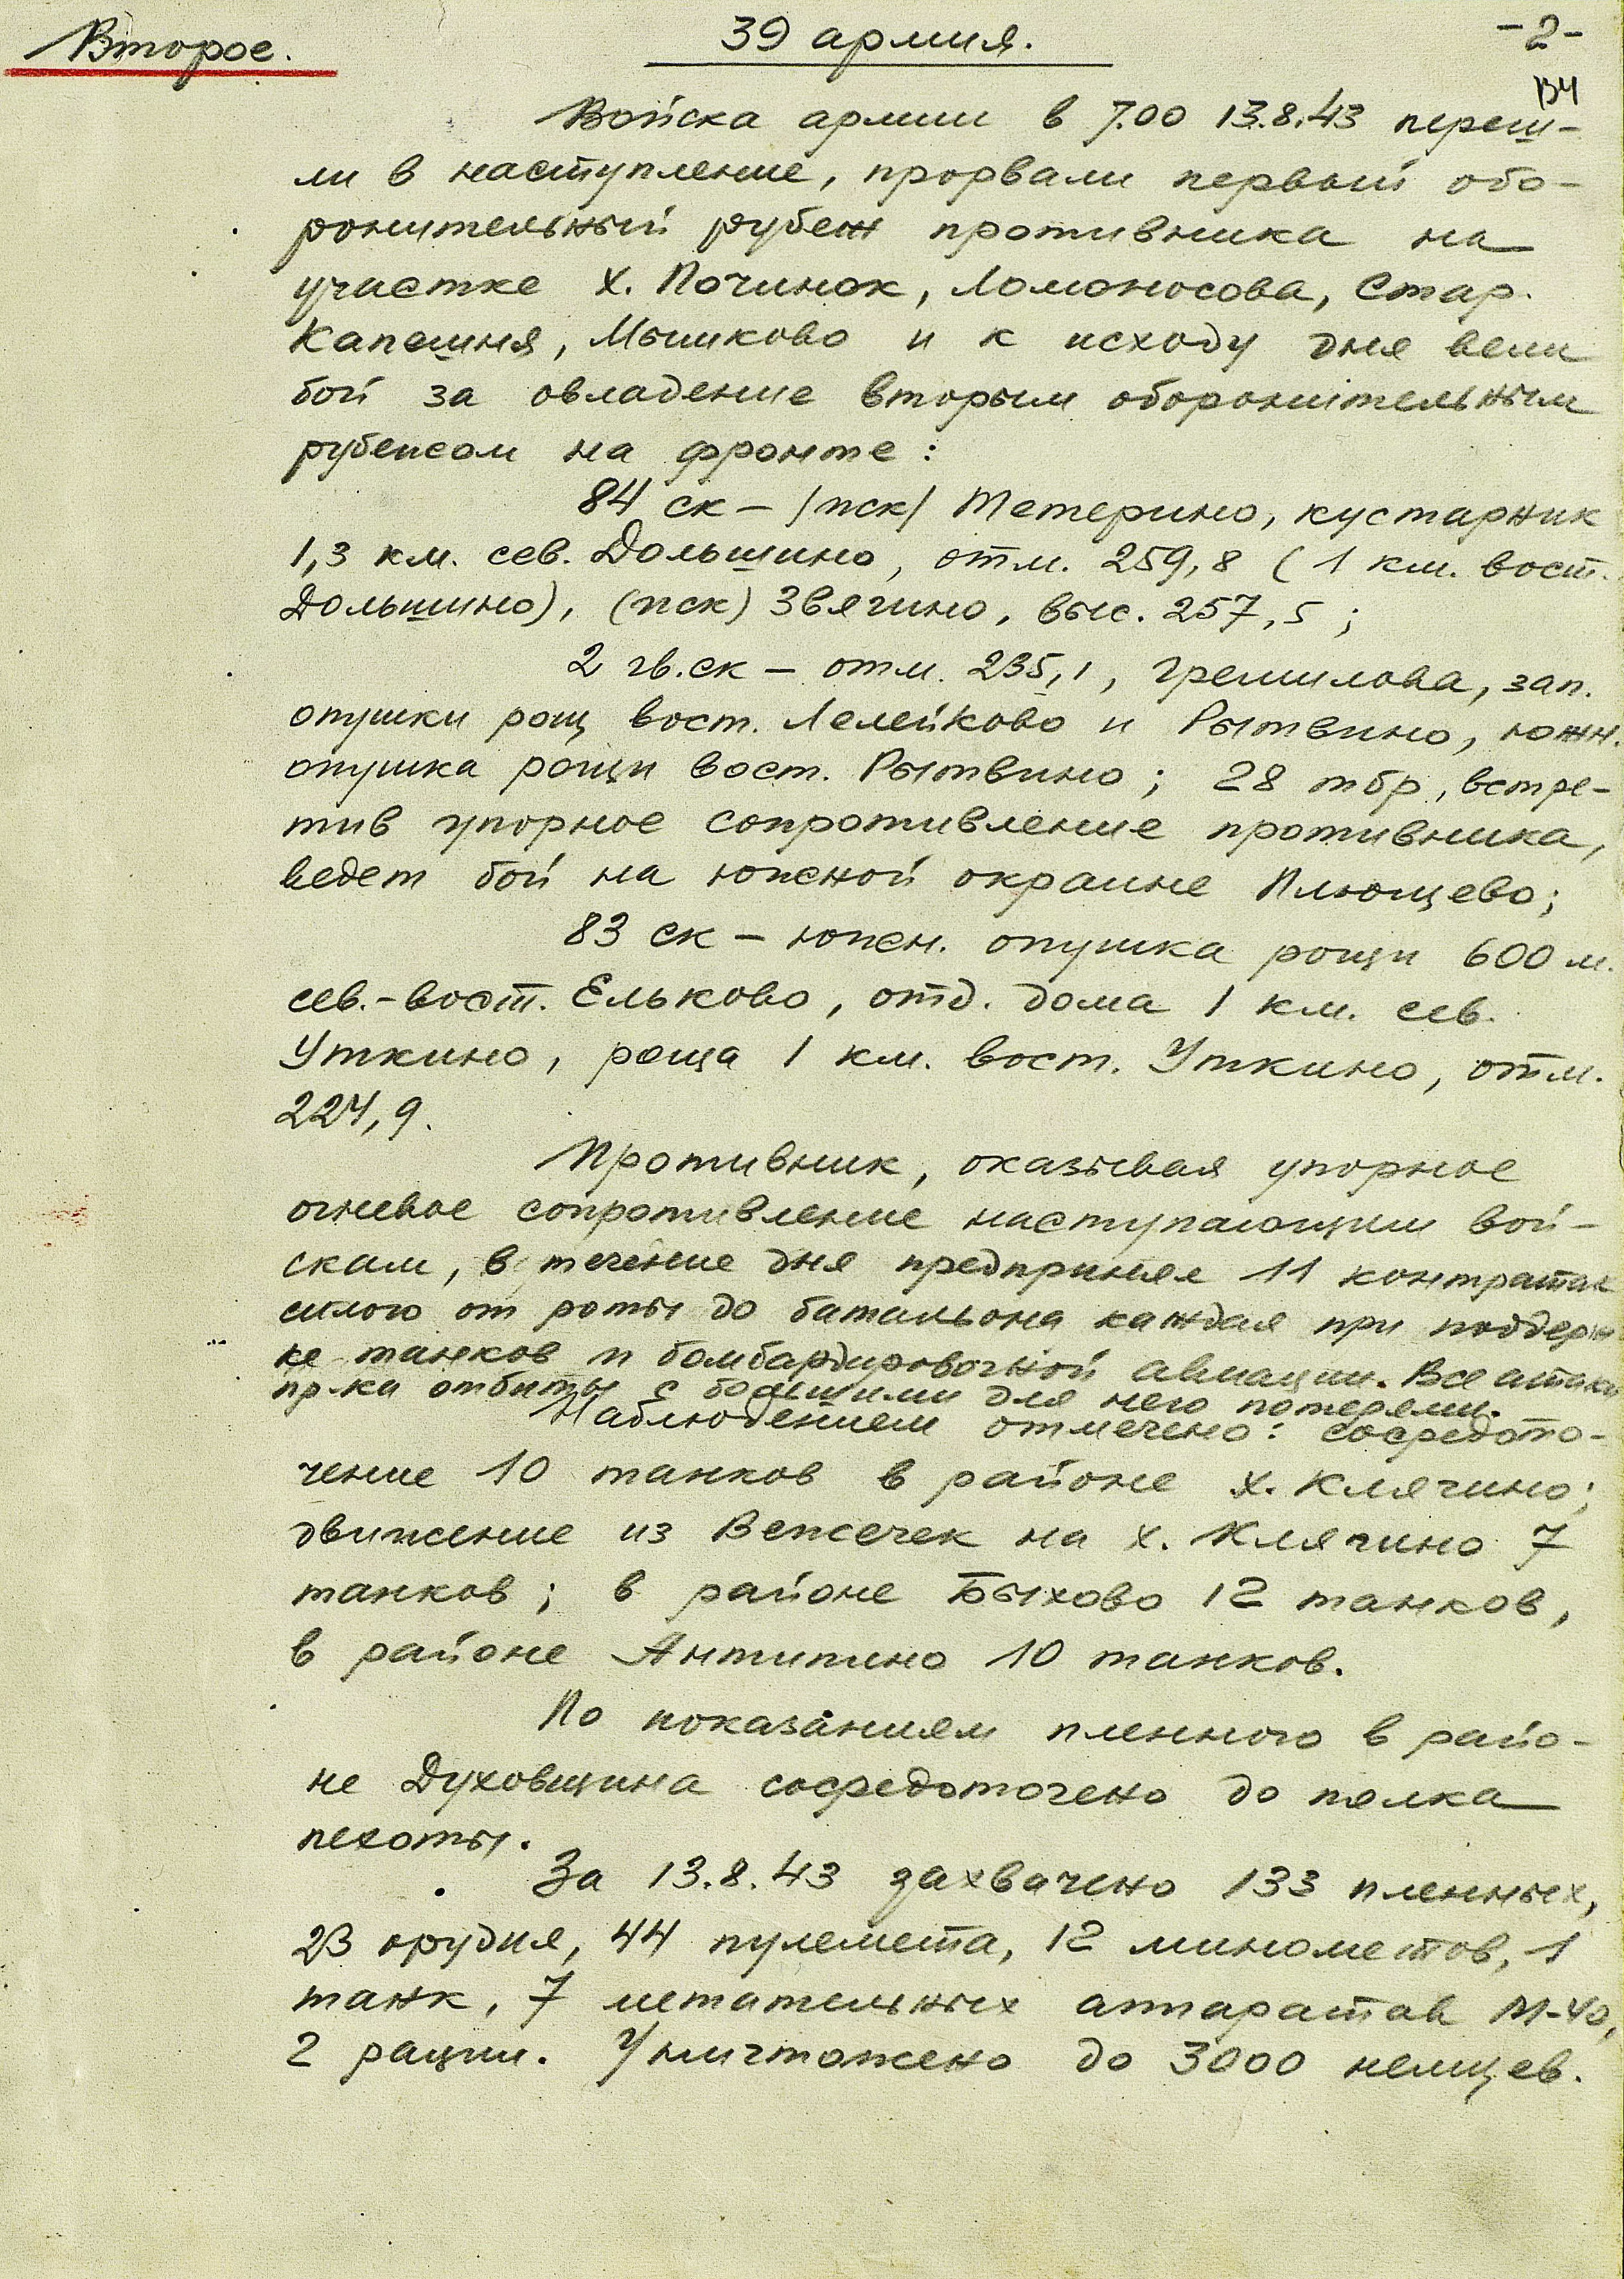 Второе.
39 армия.
-2-
Войска армии в 7.00 13.8.43 переш-
ли в наступление, прорвали первый обо-
ронительный рубеж противника на
участке х. Починок, Ломоносова, Стар.
Капешня, Мышково и к исходу дня вели
бой за овладение вторым оборонительным
рубежом на фронте:
84 ск – /иск/ Тетерино, кустарник
1,3 км. сев. Дольшино, отм. 259,8 (1 км. вост.
Дольшино), (иск) Звягино, выс. 257,5;
2 гв.ск – отм. 235,1, Гремилова, зап.
опушки рощ вост. Лелейково и Рытвино, южн.
опушка рощи вост. Рытвино; 28 тбр, встре-
тив упорное сопротивление противника,
ведет бой на южной окраине Плющево;
83 ск – южн. опушка рощи 600 м.
сев.-вост. Ельково, отд. дома 1 км. сев.
Уткино, роща 1 км. вост. Уткино, отм.
224,9.
Противник, оказывая упорное
огневое сопротивление наступающим вой-
скам, в течение дня предпринял 11 контратак
силою от роты до батальона каждая при поддерж
ке танков и бомбардировочной авиации. Все атаки
пр-ка отбиты с большими для него потерями.
Наблюдением отмечено: сосредото-
чение 10 танков в районе х. Клячино;
движение из Вежсечек на х. Клячино 7
танков; в районе Быхово 12 танков,
в районе Антипино 10 танков.
По показаниям пленного в райо-
не Духовщина сосредоточено до полка
пехоты.
За 13.8.43 захвачено 133 пленных,
23 орудия, 44 пулемета, 12 минометов, 1
танк, 7 метательных аппаратов М-40,
2 рации. Уничтожено до 3000 немцев.